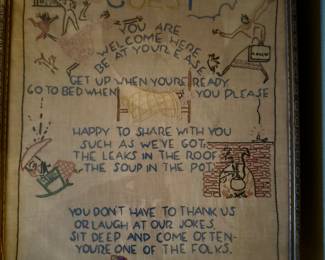 GUEST
YOU ARE
WELCOME HERE
BE AT YOUR EASE
GET UP WHEN YOU'RE READY
GO TO BED WHEN YOU PLEASE
HAPPY TO SHARE WITH YOU
SUCH AS WE'VE GOT
THE LEAKS IN THE ROOF
THE SOUP IN THE POT
YOU DON'T HAVE TO THANK US
OR LAUGH AT OUR JOKES
SIT DEEP AND COME OFTEN-
YOU'RE ONE OF THE FOLKS.